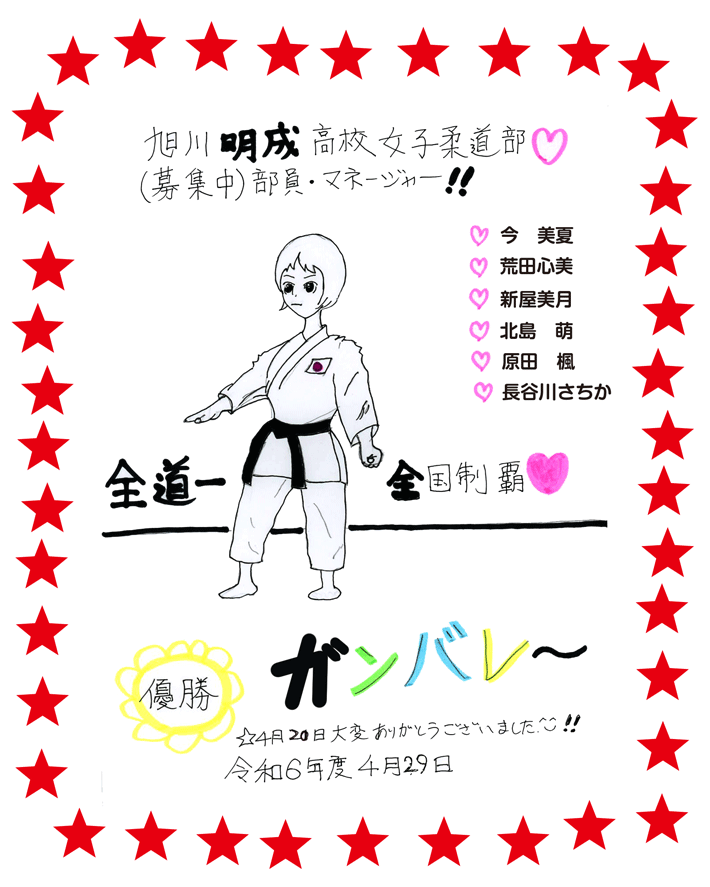 旭川明成高校女子柔道部♡
(募集中)部員・マネージャー!!
♡ 今　美夏
♡ 荒田心美
♡ 新屋美月
♡ 北島　萌
♡ 原田　楓
♡ 長谷川さちか
全道一
全国制覇♥
ガンバレ〜
優勝
☆4月20日大変ありがとうございました!!
令和6年度4月29日